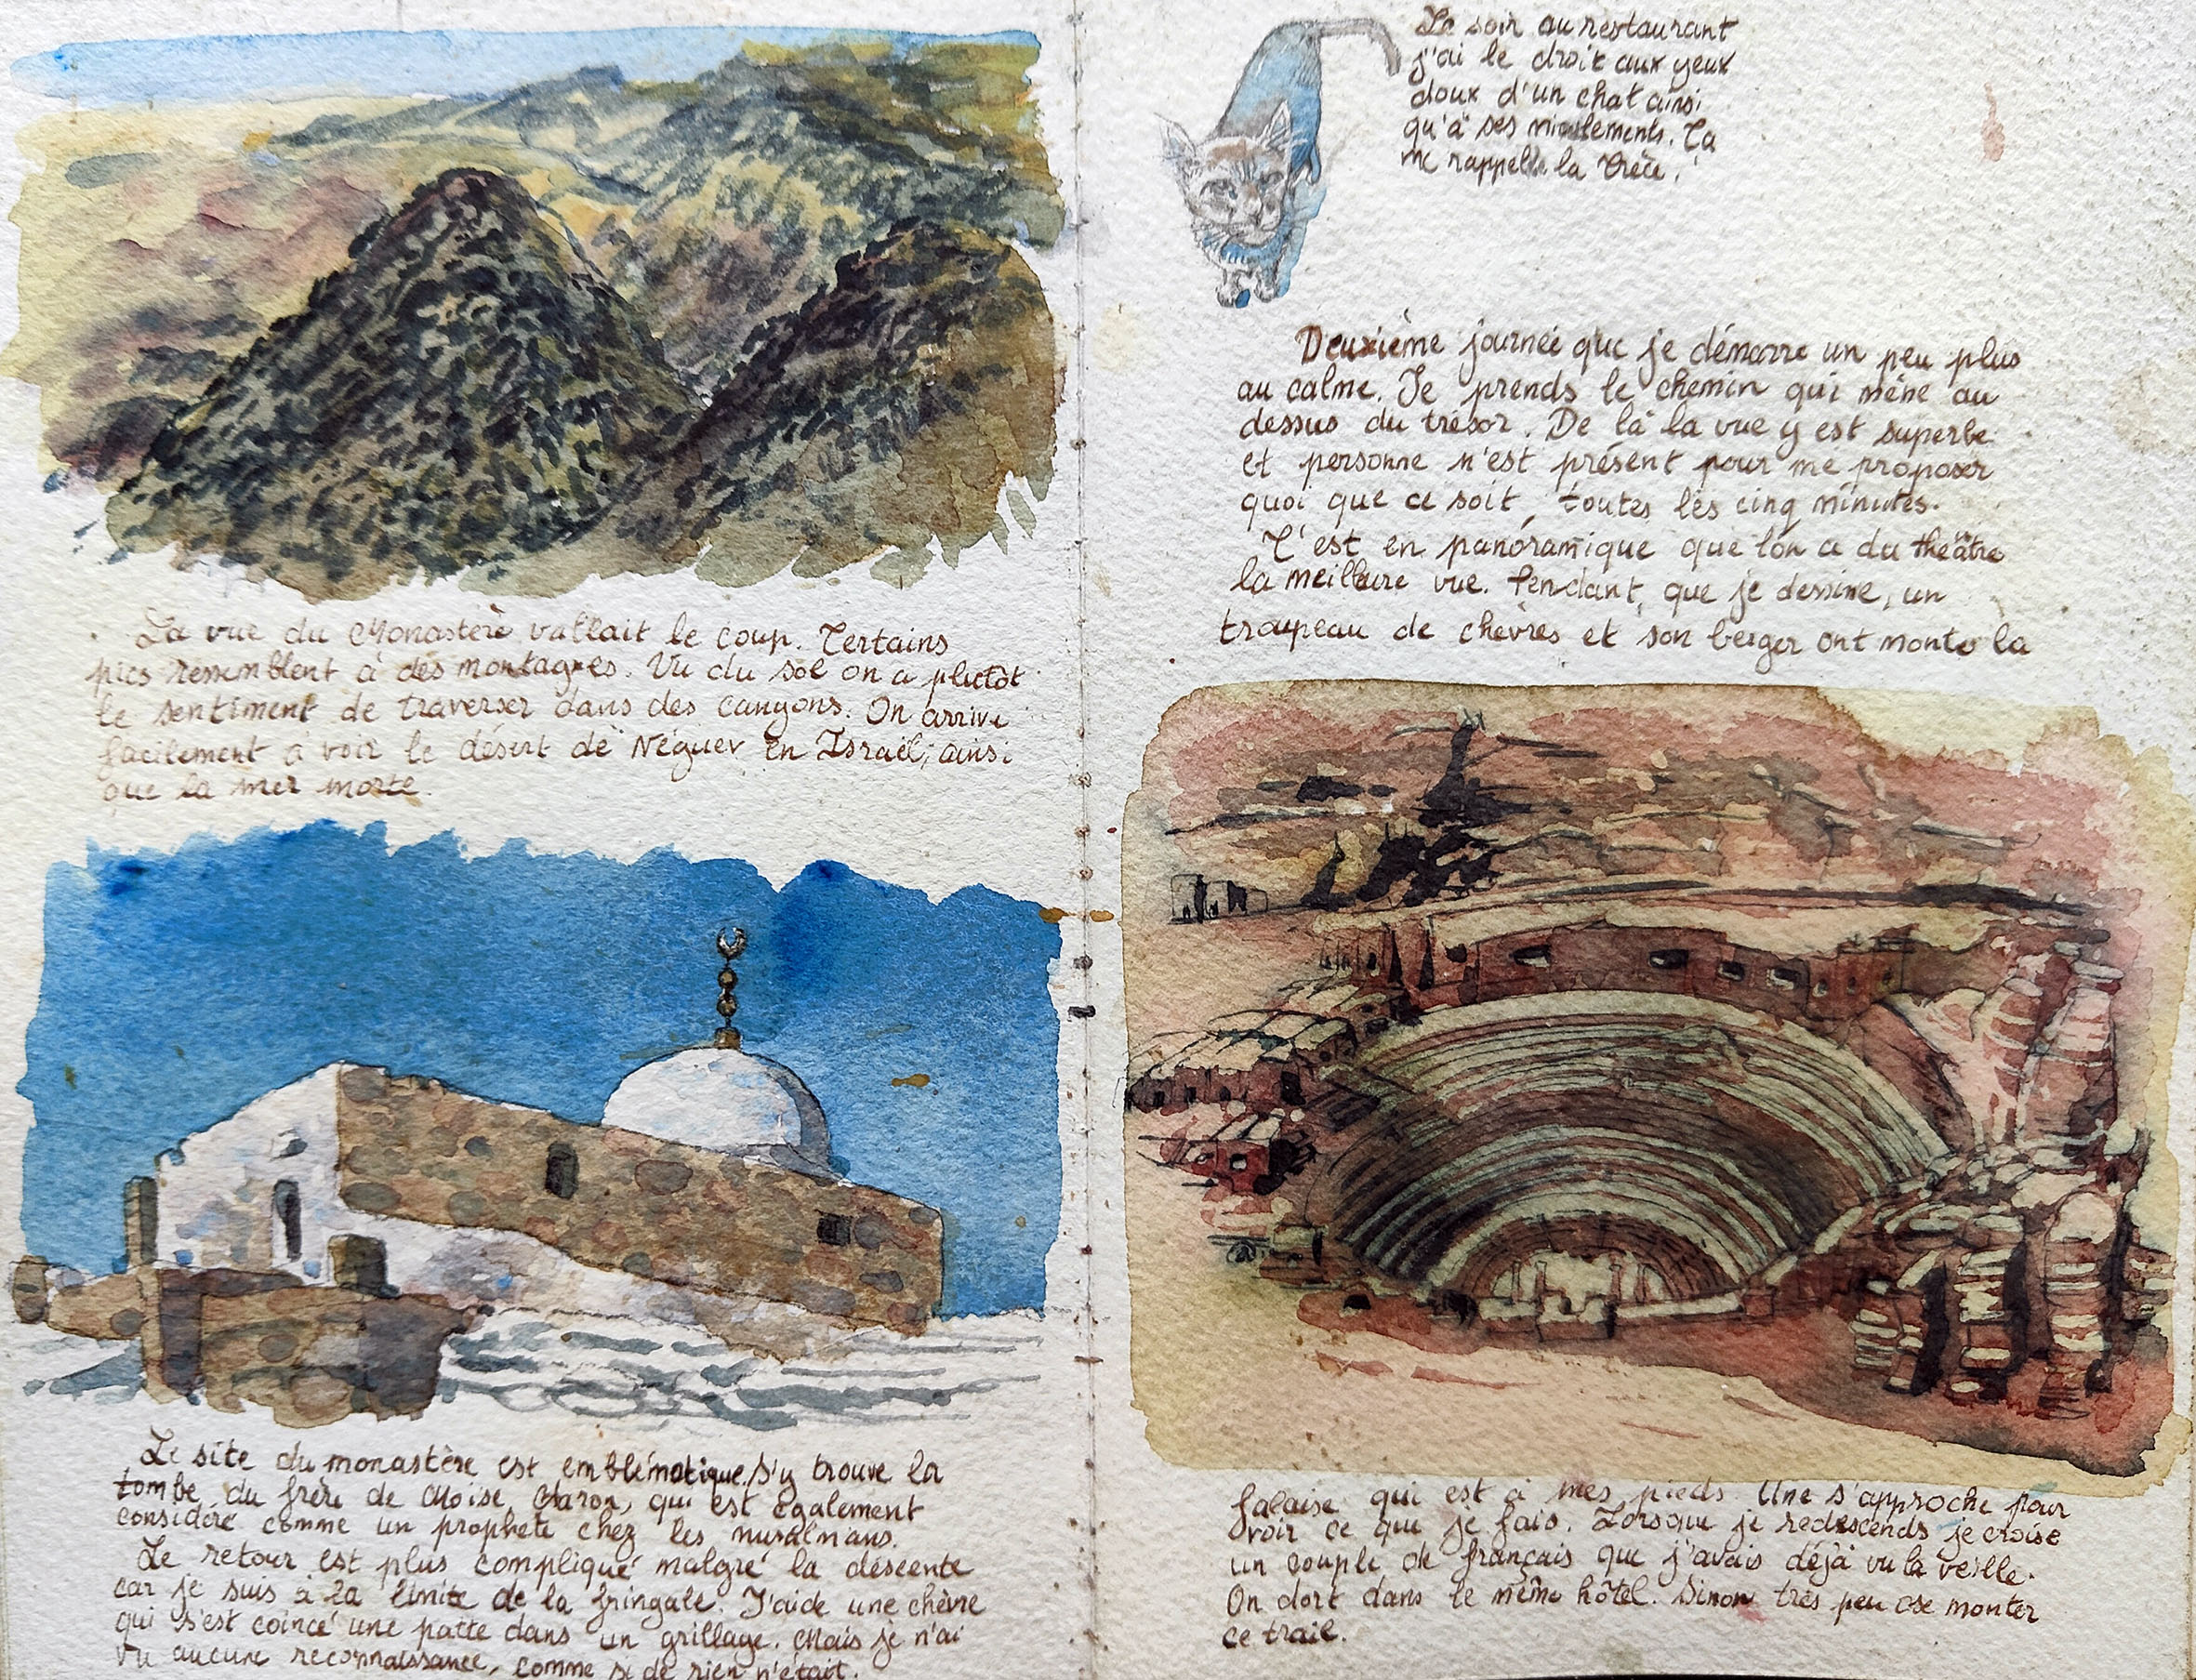 La vue du Monastère vallait le coup. Certains
pics ressemblent à des montagnes. Vu du sol on a plutôt
le sentiment de traverser dans des canyons. On arrive
facilement à voir le désert de Néguev en Israël, ainsi
que la mer morte.
Le site du monastère est emblématique. S'y trouve la
tombe du frère de Moïse, Aaron, qui est également
considéré comme un prophète chez les musulmans.
Le retour est plus compliqué malgré la descente
car je suis à la limite de la fringale. J'aide une chèvre
qui s'est coincé une patte dans un grillage. Mais je n'ai
vu aucune reconnaissance, comme si de rien n'était.
Le soir au restaurant
j'ai le droit aux yeux
doux d'un chat ainsi
qu'à ses miaulements. Ça
me rappelle la Grèce.
Deuxième journée que je démarre un peu plus
au calme. Je prends le chemin qui mène au
dessus du trésor. De là la vue y est superbe
et personne n'est présent pour me proposer
quoi que ce soit, toutes les cinq minutes.
C'est en panoramique que l'on a du théâtre
la meilleure vue. Pendant que je dessine, un
troupeau de chèvres et son berger ont monté la
falaise qui est à mes pieds. Une s'approche pour
voir ce que je fais. Lorsque je redescends je croise
un couple de français que j'avais déjà vu la veille.
On dort dans le même hôtel. Sinon très peu ose monter
ce trail.